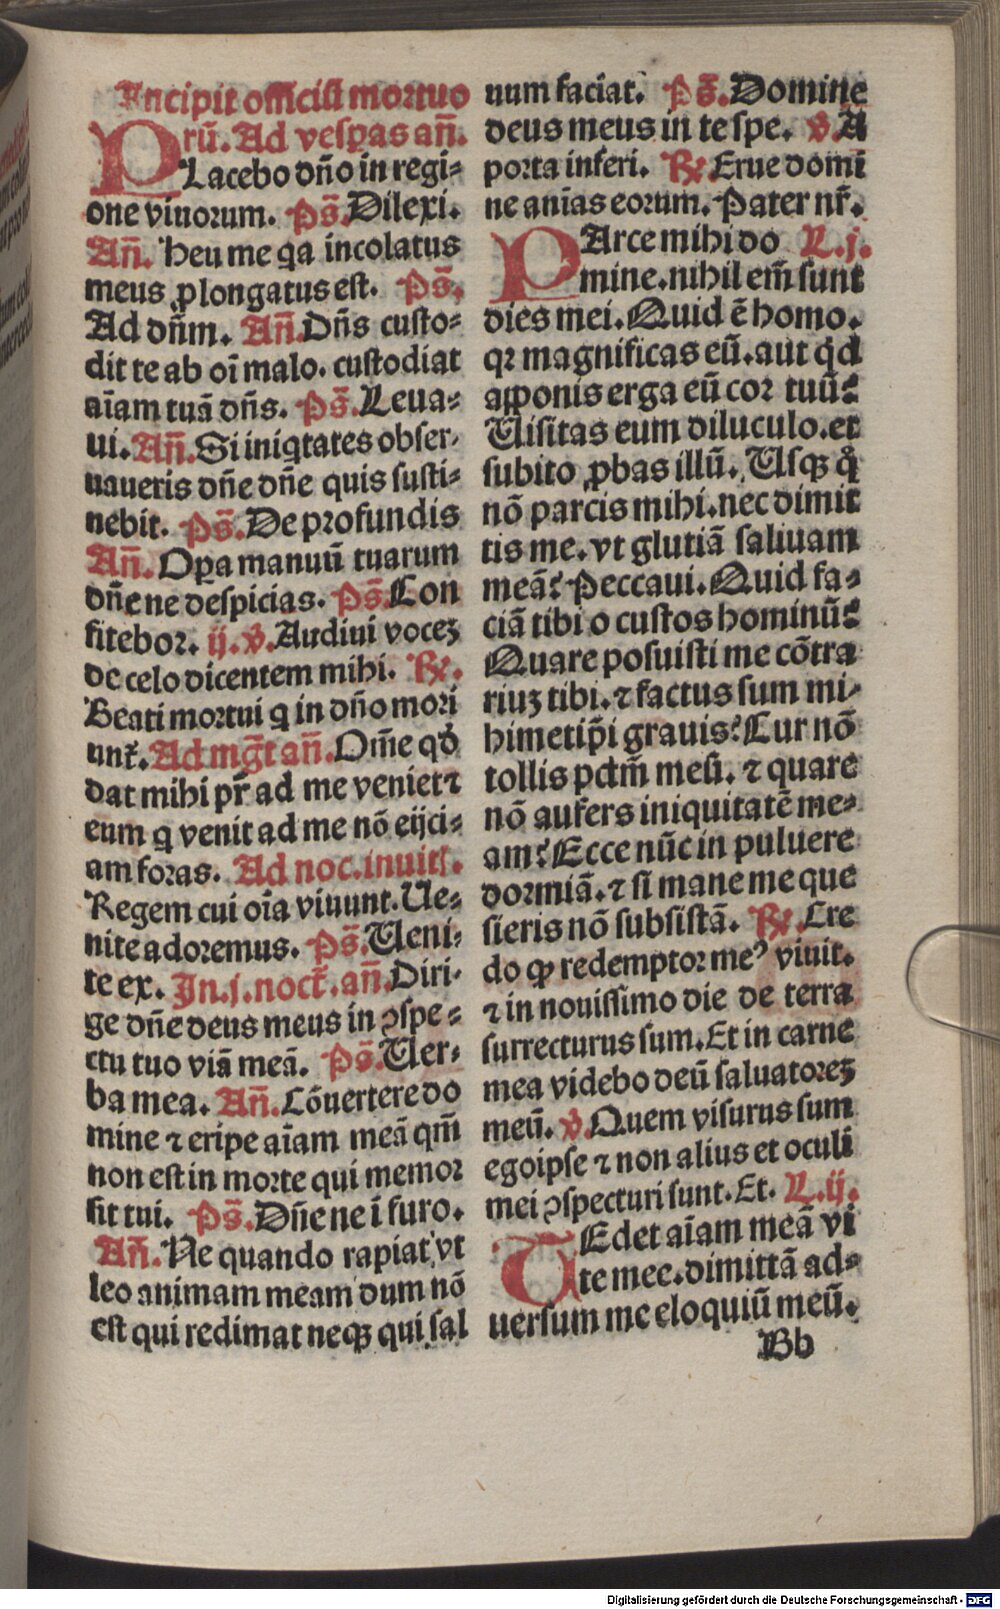 Incipit officiũ mortuo
rũ. Ad vesꝑas añ.
PLacebo dño in regi-
one viuorum. Ps̃. Dilexi.
Añ. Heu me qa incolatus
meus ꝓlongatus est. Ps̃.
Ad dñm. Añ. Dñs custo-
dit te ab oĩ malo. custodiat
aĩam tuã dñs. Ps̃. Leua-
ui. Añ. Si iniqtates obser-
uaueris dñe dñe quis susti-
nebit. Ps̃. De profundis
Añ. Oꝑa manuũ tuarum
dñe ne despicias. Ps̃. Con
fitebor. ij. v̾. Audiui vocez
de celo dicentem mihi. ℟.
Beati mortui q in dño mori
unt᷑. Ad mg̃t añ. Om̃e qđ
dat mihi pr̃ ad me veniet ⁊
eum q venit ad me nõ eijci-
am foras. Ad noc. inuitſ.
Regem cui oĩa viuunt. Ue-
nite adoremus. Ps̃. Ueni-
te ex. In. j. noct᷑. añ. Diri-
ge dñe deus meus in ɔspe-
ctu tuo viã meã. Ps̃. Uer-
ba mea. Añ. Cõuertere do
mine ⁊ eripe aĩam meã qm̃
non est in morte qui memor
sit tui. Ps̃. Dñe ne ĩ furo.
Añ. Ne quando rapiat vt
leo animam meam dum nõ
est qui redimat neqꝫ qui sal
uum faciat. Ps̃. Domine
deus meus in te spe. v̾. A
porta inferi. ℟. Erue domi
ne anĩas eorum. Pater nr̃.
PArce mihi do L. j.
mine. nihil em̃ sunt
dies mei. Quid ẽ homo.
qꝛ magnificas eũ. aut qd
apponis erga eũ cor tuũ?
Uisitas eum diluculo. et
subito ꝓbas illũ. Usqꝫ qͦ
nõ parcis mihi. nec dimit
tis me. vt glutiã saliuam
meã? Peccaui. Quid fa-
ciã tibi o custos hominũ?
Quare posuisti me cõtra
riuz tibi. ⁊ factus sum mi-
himetip̃i grauis? Cur nõ
tollis pctm̃ meũ. ⁊ quare
nõ aufers iniquitatẽ me-
am? Ecce nũc in puluere
dormiã. ⁊ si mane me que
sieris nõ subsistã. ℟. Cre
do ꝙ redemptor meꝰ viuit.
⁊ in nouissimo die de terra
surrecturus sum. Et in carne
mea videbo deũ saluatorez
meũ. v̾. Quem visurus sum
ego ipse ⁊ non alius et oculi
mei ɔspecturi sunt. Et. L. ij.
TEdet aĩam meã vi
te mee. dimittã ad-
uersum me eloquiũ meũ.
Bb
Digitalisierung gefördert durch die Deutsche Forschungsgemeinschaft - DFG